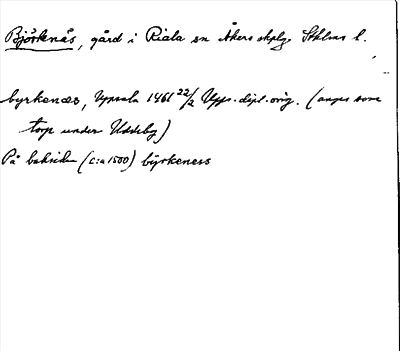 Björkenäs, gård i Riala sn Åkers skplg Sthlms l.
byrkenæs, Uppsala 1461 22/2 Upps. dipl. orig. (anges som
torp under Uddeby)
På baksidan (c:a 1500) byrkeness